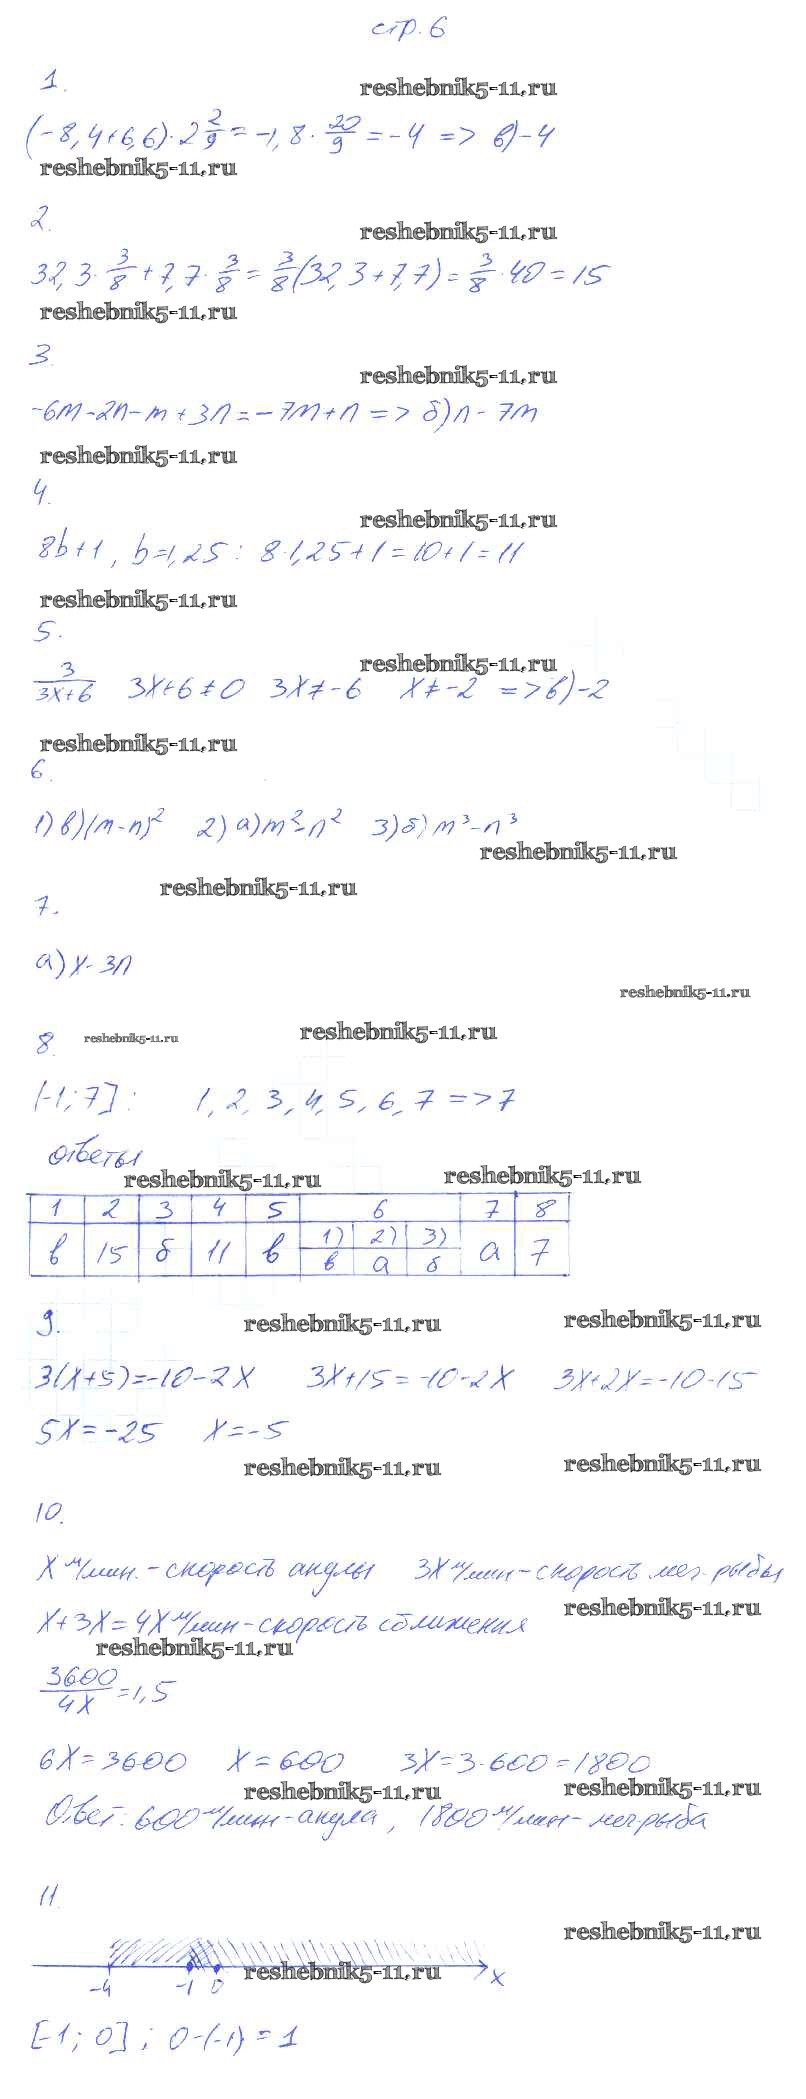 стр. 6
1.
reshebnik5-11.ru
(-8,4+6,6)·2 2/9 = -1,8 · 20/9 = -4 => в) -4
reshebnik5-11.ru
2.
reshebnik5-11.ru
32,3 · 3/8 + 7,7 · 3/8 = 3/8 (32,3+7,7) = 3/8 · 40 = 15
reshebnik5-11.ru
3.
reshebnik5-11.ru
-6m-2n-m+3n=-7m+n => б) n-7m
reshebnik5-11.ru
4.
reshebnik5-11.ru
8b+1, b=1,25: 8·1,25+1=10+1=11
reshebnik5-11.ru
5.
reshebnik5-11.ru
3/(3x+6) 3x+6≠0 3x≠-6 x≠-2 => в) -2
reshebnik5-11.ru
6.
1) в) (m-n)² 2) а) m²-n² 3) б) m³-n³
reshebnik5-11.ru
reshebnik5-11.ru
7.
а) x-3n
reshebnik5-11.ru
8. reshebnik5-11.ru reshebnik5-11.ru
[-1; 7]: 1, 2, 3, 4, 5, 6, 7 => 7
ответы
reshebnik5-11.ru reshebnik5-11.ru
1 2 3 4 5 6 7 8
в 15 б 11 в 1) 2) 3) а 7
в а б
9. reshebnik5-11.ru reshebnik5-11.ru
3(x+5)=-10-2x 3x+15=-10-2x 3x+2x=-10-15
5x=-25 x=-5
reshebnik5-11.ru reshebnik5-11.ru
10.
x м/мин. - скорость акулы 3x м/мин - скорость меч-рыбы
reshebnik5-11.ru
x+3x=4x м/мин - скорость сближения
reshebnik5-11.ru
3600/4x=1,5
6x=3600 x=600 3x=3·600=1800
reshebnik5-11.ru reshebnik5-11.ru
Ответ: 600 м/мин - акула, 1800 м/мин - меч-рыба
11.
reshebnik5-11.ru
reshebnik5-11.ru
-4 -1 0 x
[-1; 0]; 0-(-1)=1